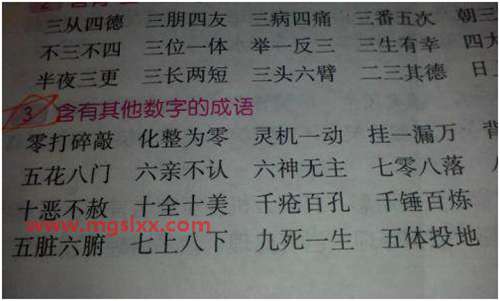 三从四德 三朋四友 三病四痛 三番五次 朝三
不三不四 三位一体 举一反三 三生有幸 四大
半夜三更 三长两短 三头六臂 二三其德 日
3 含有其他数字的成语
零打碎敲 化整为零 灵机一动 挂一漏万
五花八门 六亲不认 六神无主 七零八落
十恶不赦 十全十美 千疮百孔 千锤百炼
www.mgslxx.com
五脏六腑 七上八下 九死一生 五体投地